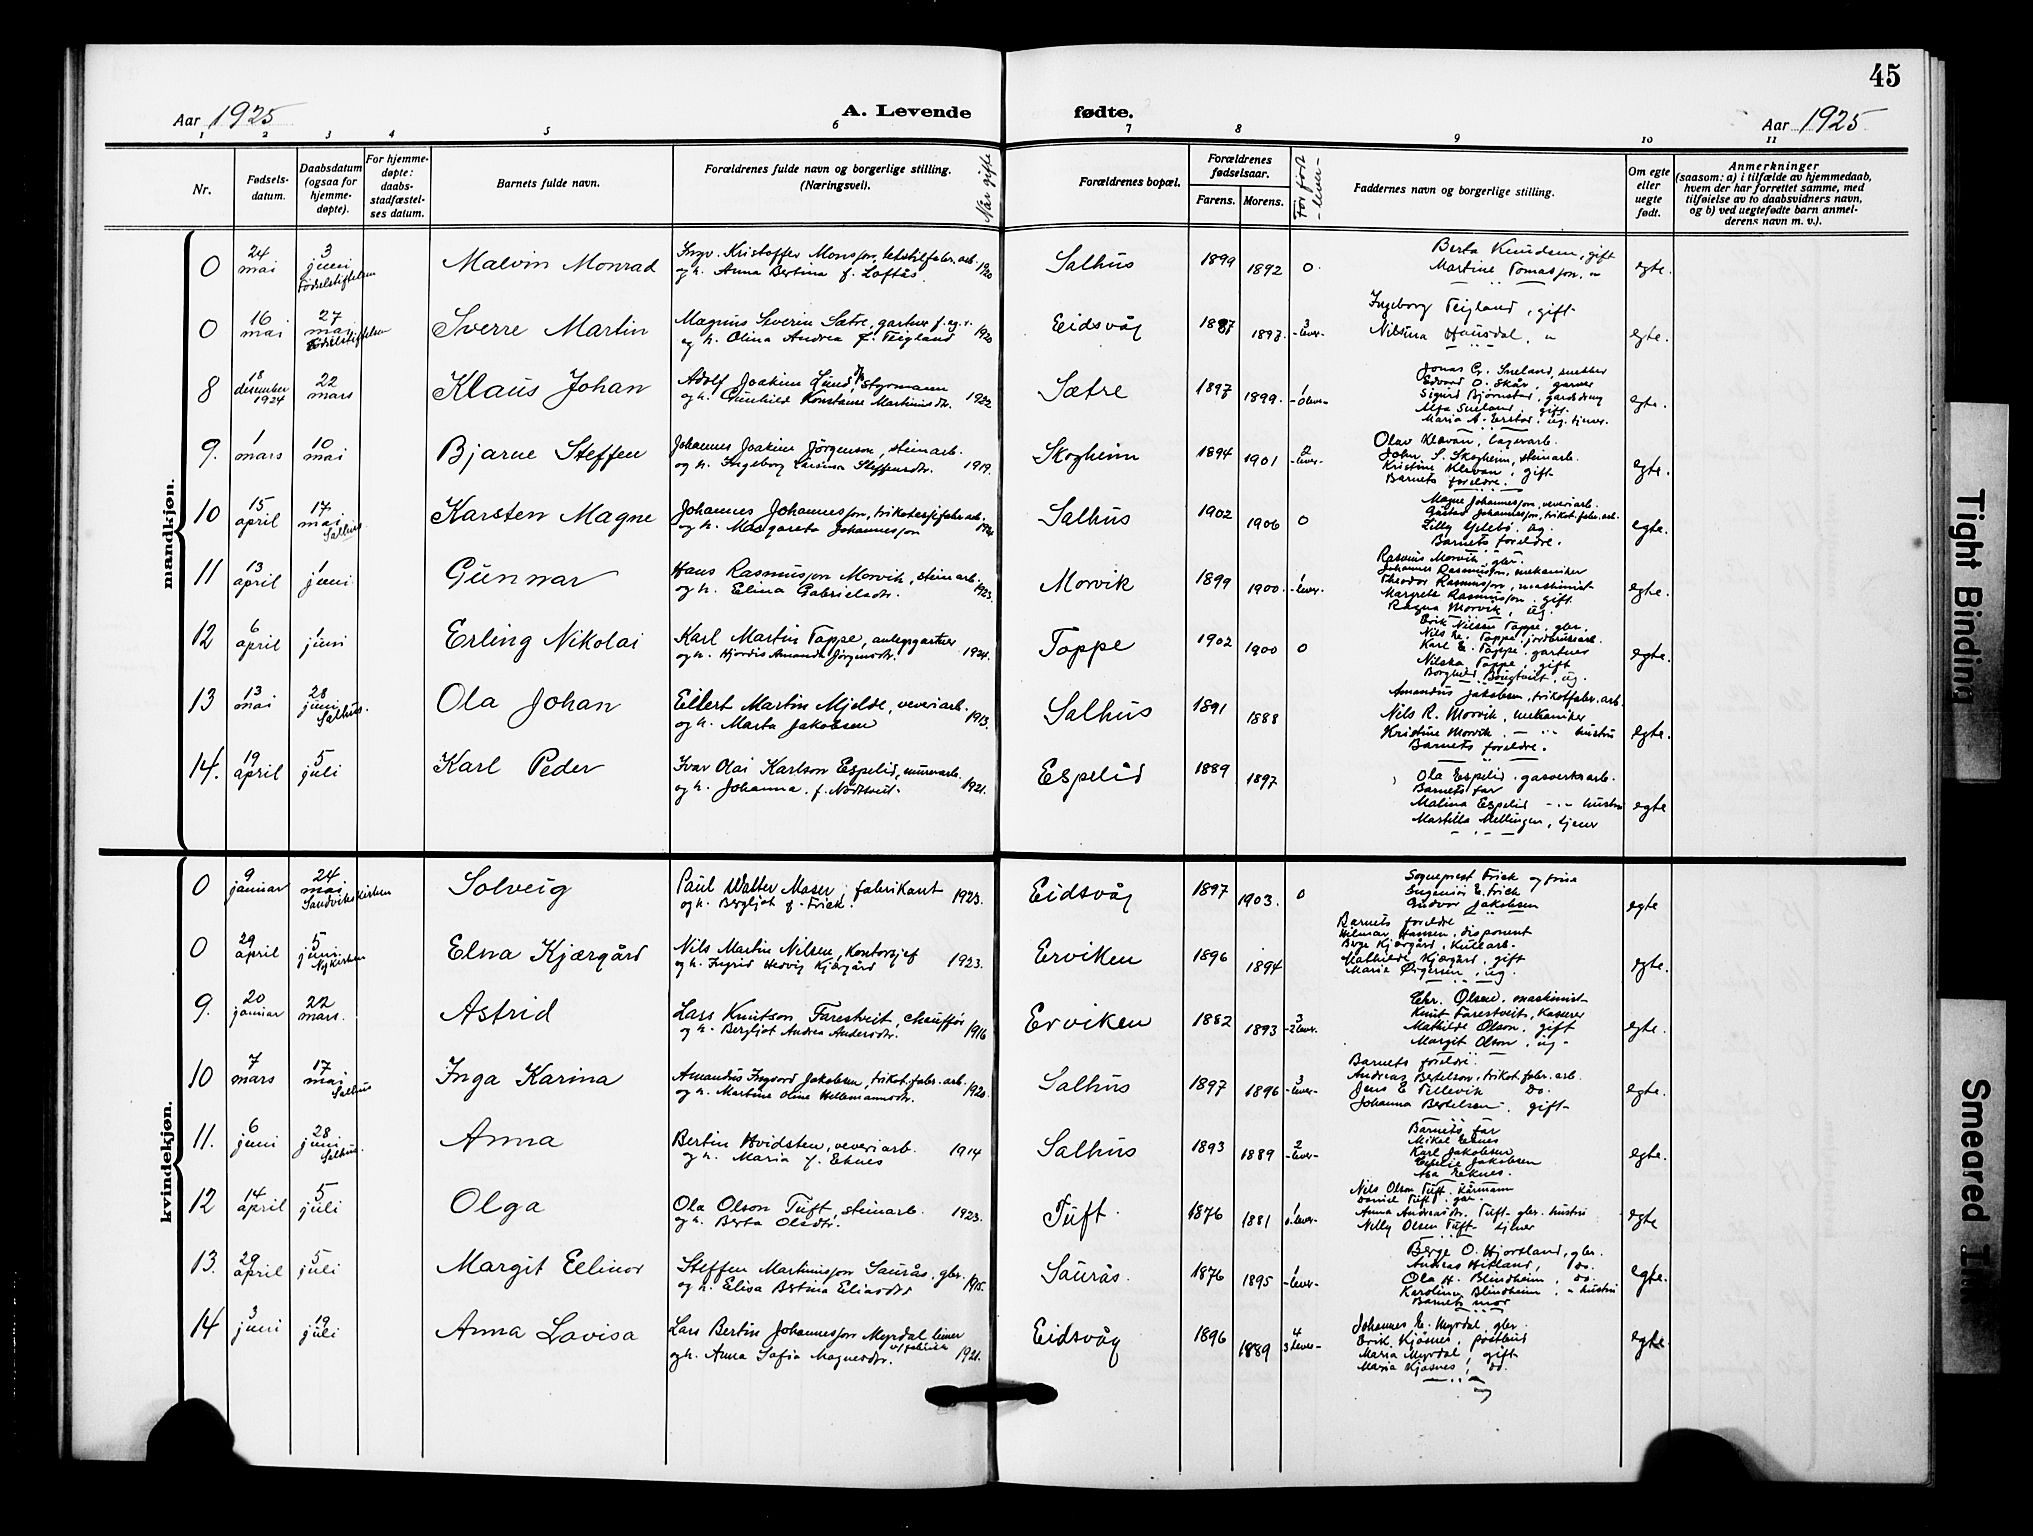 45
Aar 1925
A. Levende fødte.
Aar 1925
1 2 3 4 5 6 7 8 9 10 11
Nr.
Fødsels-
datum.
Daabsdatum
(ogsaa for
hjemme-
døpte).
For hjemme-
døpte:
daabs-
stadfæstel-
ses datum.
Barnets fulde navn.
Forældrenes fulde navn og borgerlige stilling.
(Næringsvei).
Når gifte
Forældrenes bopæl.
Forældrenes
fødselsaar.
Farens. Morens.
For født
-lever-
Faddernes navn og borgerlige stilling.
Om egte
eller
uegte
født.
Anmerkninger
(saasom: a) i tilfælde av hjemmedaab,
hvem der har forrettet samme, med
tilføielse av to daabsvidners navn,
og b) ved uegtefødte barn anmel-
derens navn m. v.).
mandkjøn.
0 24 mai 3 juni Fødselstiftelsen Malvin Monrad
Ingv. Kristoffer Monsson, tekstilfabr. arb.
og h. Anna Bertina f. Loftås 1920
Salhus 1899 1892 0
Berta Knudsen, gift
Martine Tomasson, "
egte.
0 16 mai 27 mai Fødselstiftelsen Sverre Martin
Magnus Severin Sætre, gartner
og h. Olina Andrea f. Teigland 1920
Eidsvåg 1887 1897. 3 -lever-
Ingeborg Teigland, gift
Nilsina Hausdal, "
egte.
8 18 desember 1924 22 mars Klaus Johan
Adolf Joakim Lund, styrmann
og h. Gunhild Konstanse Martinusdtr. 1922
Sætre 1897 1899. 1 -0lever-
Jonas G. Sneland, snekker
Edvard O. Skår, garver
Sigurd Bjørnstad, gårdsdreng
Alfa Sneland, gift
Maria A. Erstad, ug. tjener.
egte.
9. 1 mars 10 mai Bjarne Steffen
Johannes Joakim Jörgenson, steinarb.
og h. Ingeborg Larsina Steffensdtr. 1919.
Skogheim 1894 1901 2 -lever-
Olav Klævan, lagerarb.
John S. Skogheim, steinarb.
Kristine Klevan, gift
Barnets foreldre.
egte.
10 15 april 17 mai Salhus Karsten Magne
Johannes Johannesson, trikotasjefabr. arb.
og h. Margareta Johannesson
Salhus 1902 1906 0
Magne Johannesson, veveriarb.
Gustav Johannesson, trikot. fabr. arb.
Barnets foreldre.
egte.
11 13 april 1 juni Gunnar
Hans Rasmusson Morvik, steinarb.
og h. Elina Gabrielsdtr. 1923.
Morvik 1899 1900. 1 -lever-
Rasmus Morvik, gbr.
Johannes Rasmusson, mekaniker
Theodor Rasmusson, maskinist
Margrete Rasmusson, gift
Ragna Morvik, ug.
egte.
12 6 april 1 juni Erling Nikolai
Karl Martin Toppe, anlegsgartner
og h. Hjördis Amanda Jörgensdtr. 1924.
Toppe 1902 1900 0
Erik Nilssen Toppe, gbr.
Nils E. Toppe, jordbruksarb.
Karl E. Toppe, gartner
Nilska Toppe, gift
Borghild Bougtveit, ug.
egte.
13 13 mai 28 juni Salhus. Ola Johan
Eilert Martin Mjelde, veveriarb.
og h. Marta Jakobsen 1913.
Salhus 1891 1888
Amandus Jakobsen, trikotfabr. arb.
Nils R. Morvik, mekaniker
Kristine Morvik, - " - hustru
Barnets foreldre.
egte.
14. 19 april 5 juli Karl Peder
Ivar Olai Karlson Espelid, murerarb.
og h. Johanna f. Nødtveit. 1921.
Espelid 1889 1897
Ola Espelid, gasverksarb.
Barnets far
Malina Espelid - " - hustru
Martilla Mellingen, tjener
egte
kvindekjøn.
0 9 januar 24 mai Sandvikskirken Solveig
Paul Walter Moser, fabrikant
og h. Bergljot f. Frick. 1923.
Eidsvåg 1897 1903. 0
Sogneprest Frick og frue
Ingeniör E. Frick
Gudvor Jakobsen
egte
0 29 april 5 juni Nykirken Elna Kjærgård
Nils Martin Nilsen, kontorsjef
og h. Ingrid Hedvig Kjærgård 1923.
Erviken 1896 1894
Barnets foreldre
Hilmar Hansen, disponent
Berge Kjærgård, kullarb.
Mathilde Kjærgård, gift
Marie Ørgersen, ug.
egte.
9. 20 januar 22 mars. Astrid
Lars Knutson Farestveit, chauffør
og h. Bergljot Andrea Andersdtr. 1916
Erviken 1882 1893 3 -2lever-
Chr. Olsen, maskinist
Knut Farestveit, kaserer
Mathilde Olson, gift
Margit Olson, ug.
egte.
10 7 mars 17 mai Salhus Inga Karina
Amandus Ingvard Jakobsen, trikot. fabr. arb.
og h. Martine Oline Hellemannsdtr. 1920.
Salhus 1897 1896 3 -lever-
Barnets foreldre.
Andreas Bertelson, trikot. fabr. arb.
Jens E. Tellevik do.
Johanna Bertelsen, gift
egte.
11. 6 juni 28 juni Salhus. Anna
Bertin Hvidsten, veveriarb.
og h. Maria f. Eknes 1914
Salhus 1893 1889 2 -lever-
Barnets far
Mikal Eknes
Karl Jakobsen
Jakobsen
Eknes.
egte.
12 14 april 5 juli Olga
Ola Olson Tuft, steinarb.
og h. Berta Olsdtr. 1923.
Tuft. 1876 1881 1 0lever-
Nils Olson Tuft, kårmann
Daniel Tuft, gbr.
Anna Andreasdtr. Tuft, gbr. hustru
Nelly Olsen Tuft, tjener
egte
13. 29 april 5 juli Margit Ellinor
Steffen Martinusson Saurås, gbr.
og h. Elisa Bertina Eliasdtr 1915.
Saurås. 1876 1895 1 -lever-
Berge O. Hjortland, gbr.
Andreas Hitland, do.
Ola H. Blindheim, do.
Karolina Blindheim, " hustru
Barnets mor
egte.
14 3 juni 19 juli Anna Lovisa
Lars Bertin Johannesson Myrdal
og h. Anna Sofia Magnesdtr. 1921.
Eidsvåg 1896 1889 4 3 lever-
Johannes E. Myrdal, gbr.
Erik Kjösnes, postbud
Maria Myrdal, gift
Maria Kjosnes, do.
egte.
Tight Binding
Smeared Ink